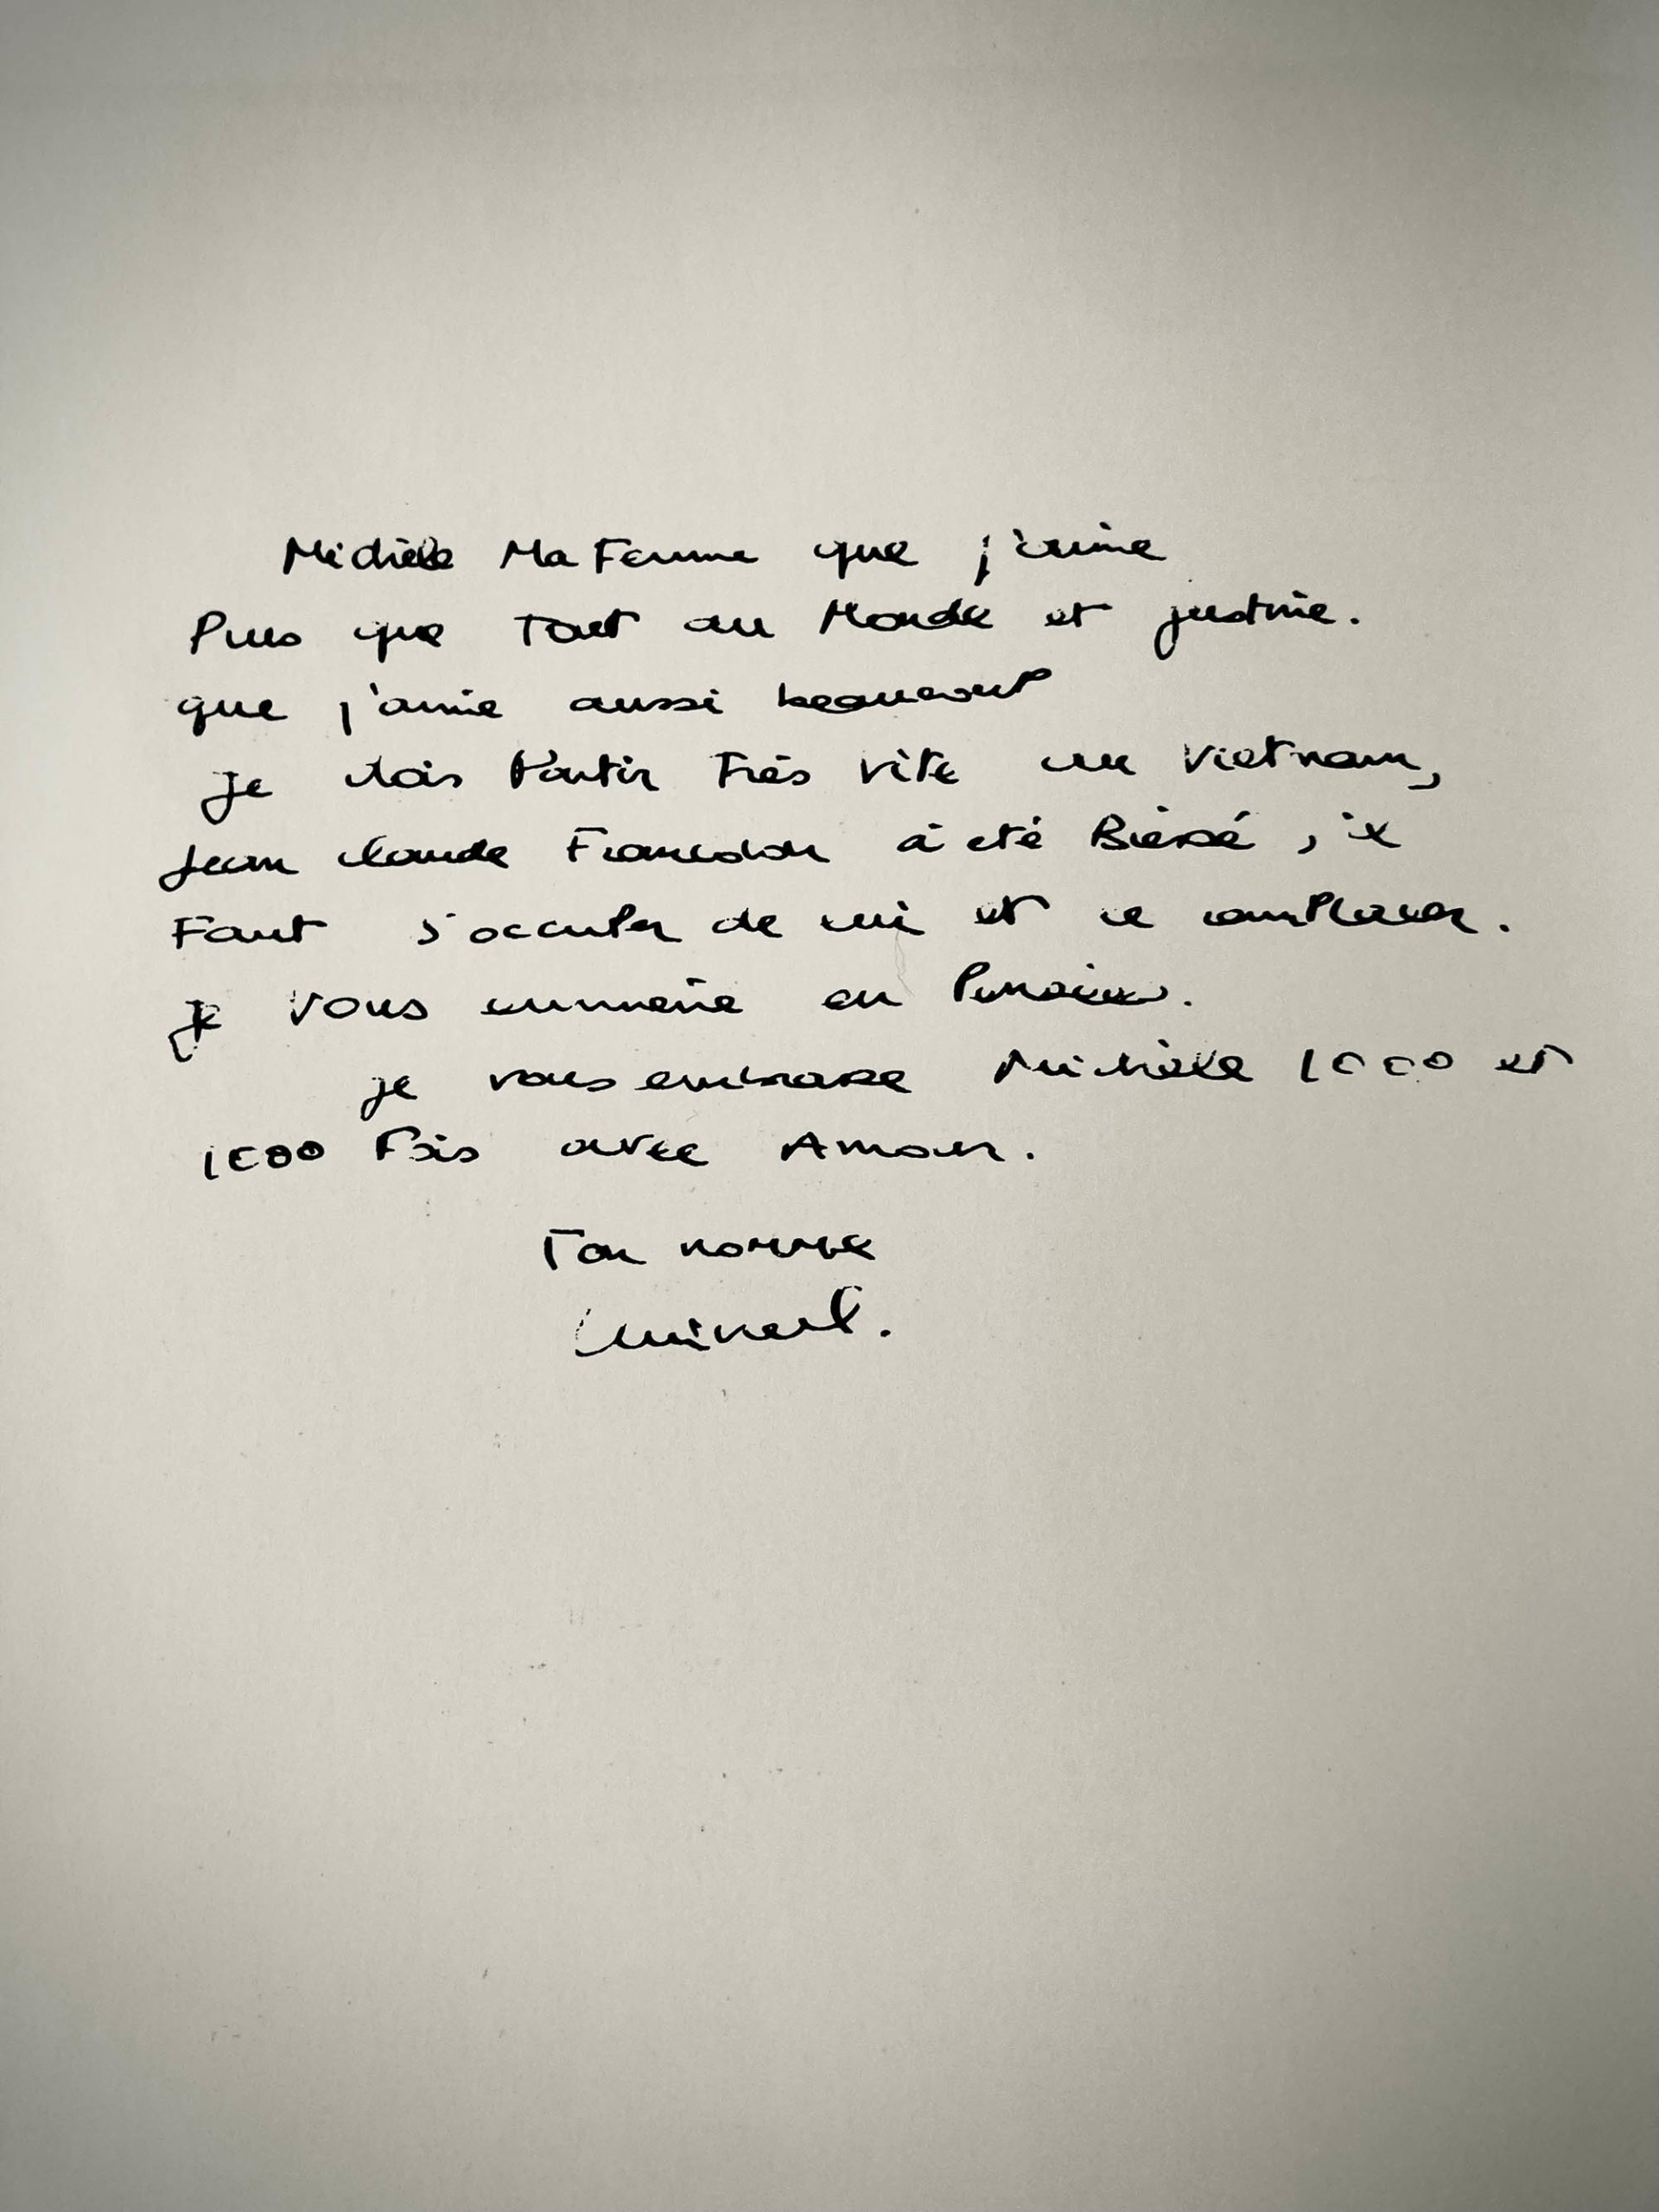 Michèle Ma Femme que j'aime
Plus que Tout au Monde et justine.
que j'aime aussi beaucoup
je dois Partir Très vite au Vietnam,
jean claude Francolon à eté Blessé, il
Faut s'occuper de lui et le remplacer.
je vous emmene en
je vous embrasse Michèle 1000 et
1000 Fois avec Amour.
Ton homme